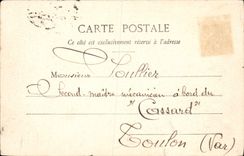 CARTE POSTALE
Ce côté est exclusivement réservé à l'adresse
Monsieur Soultier
Second-maître mécanicien à bord du
"Cassard"
Toulon (Var)